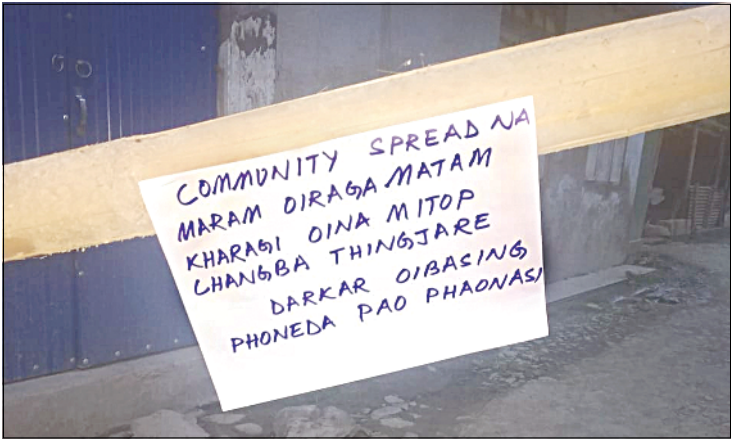 COMMUNITY SPREAD NA
MARAM OIRAGA MATAM
KHARAGI OINA MITOP
CHANGBA THINGJARE
DARKAR OIBASING
PHONEDA PAO PHAONASI